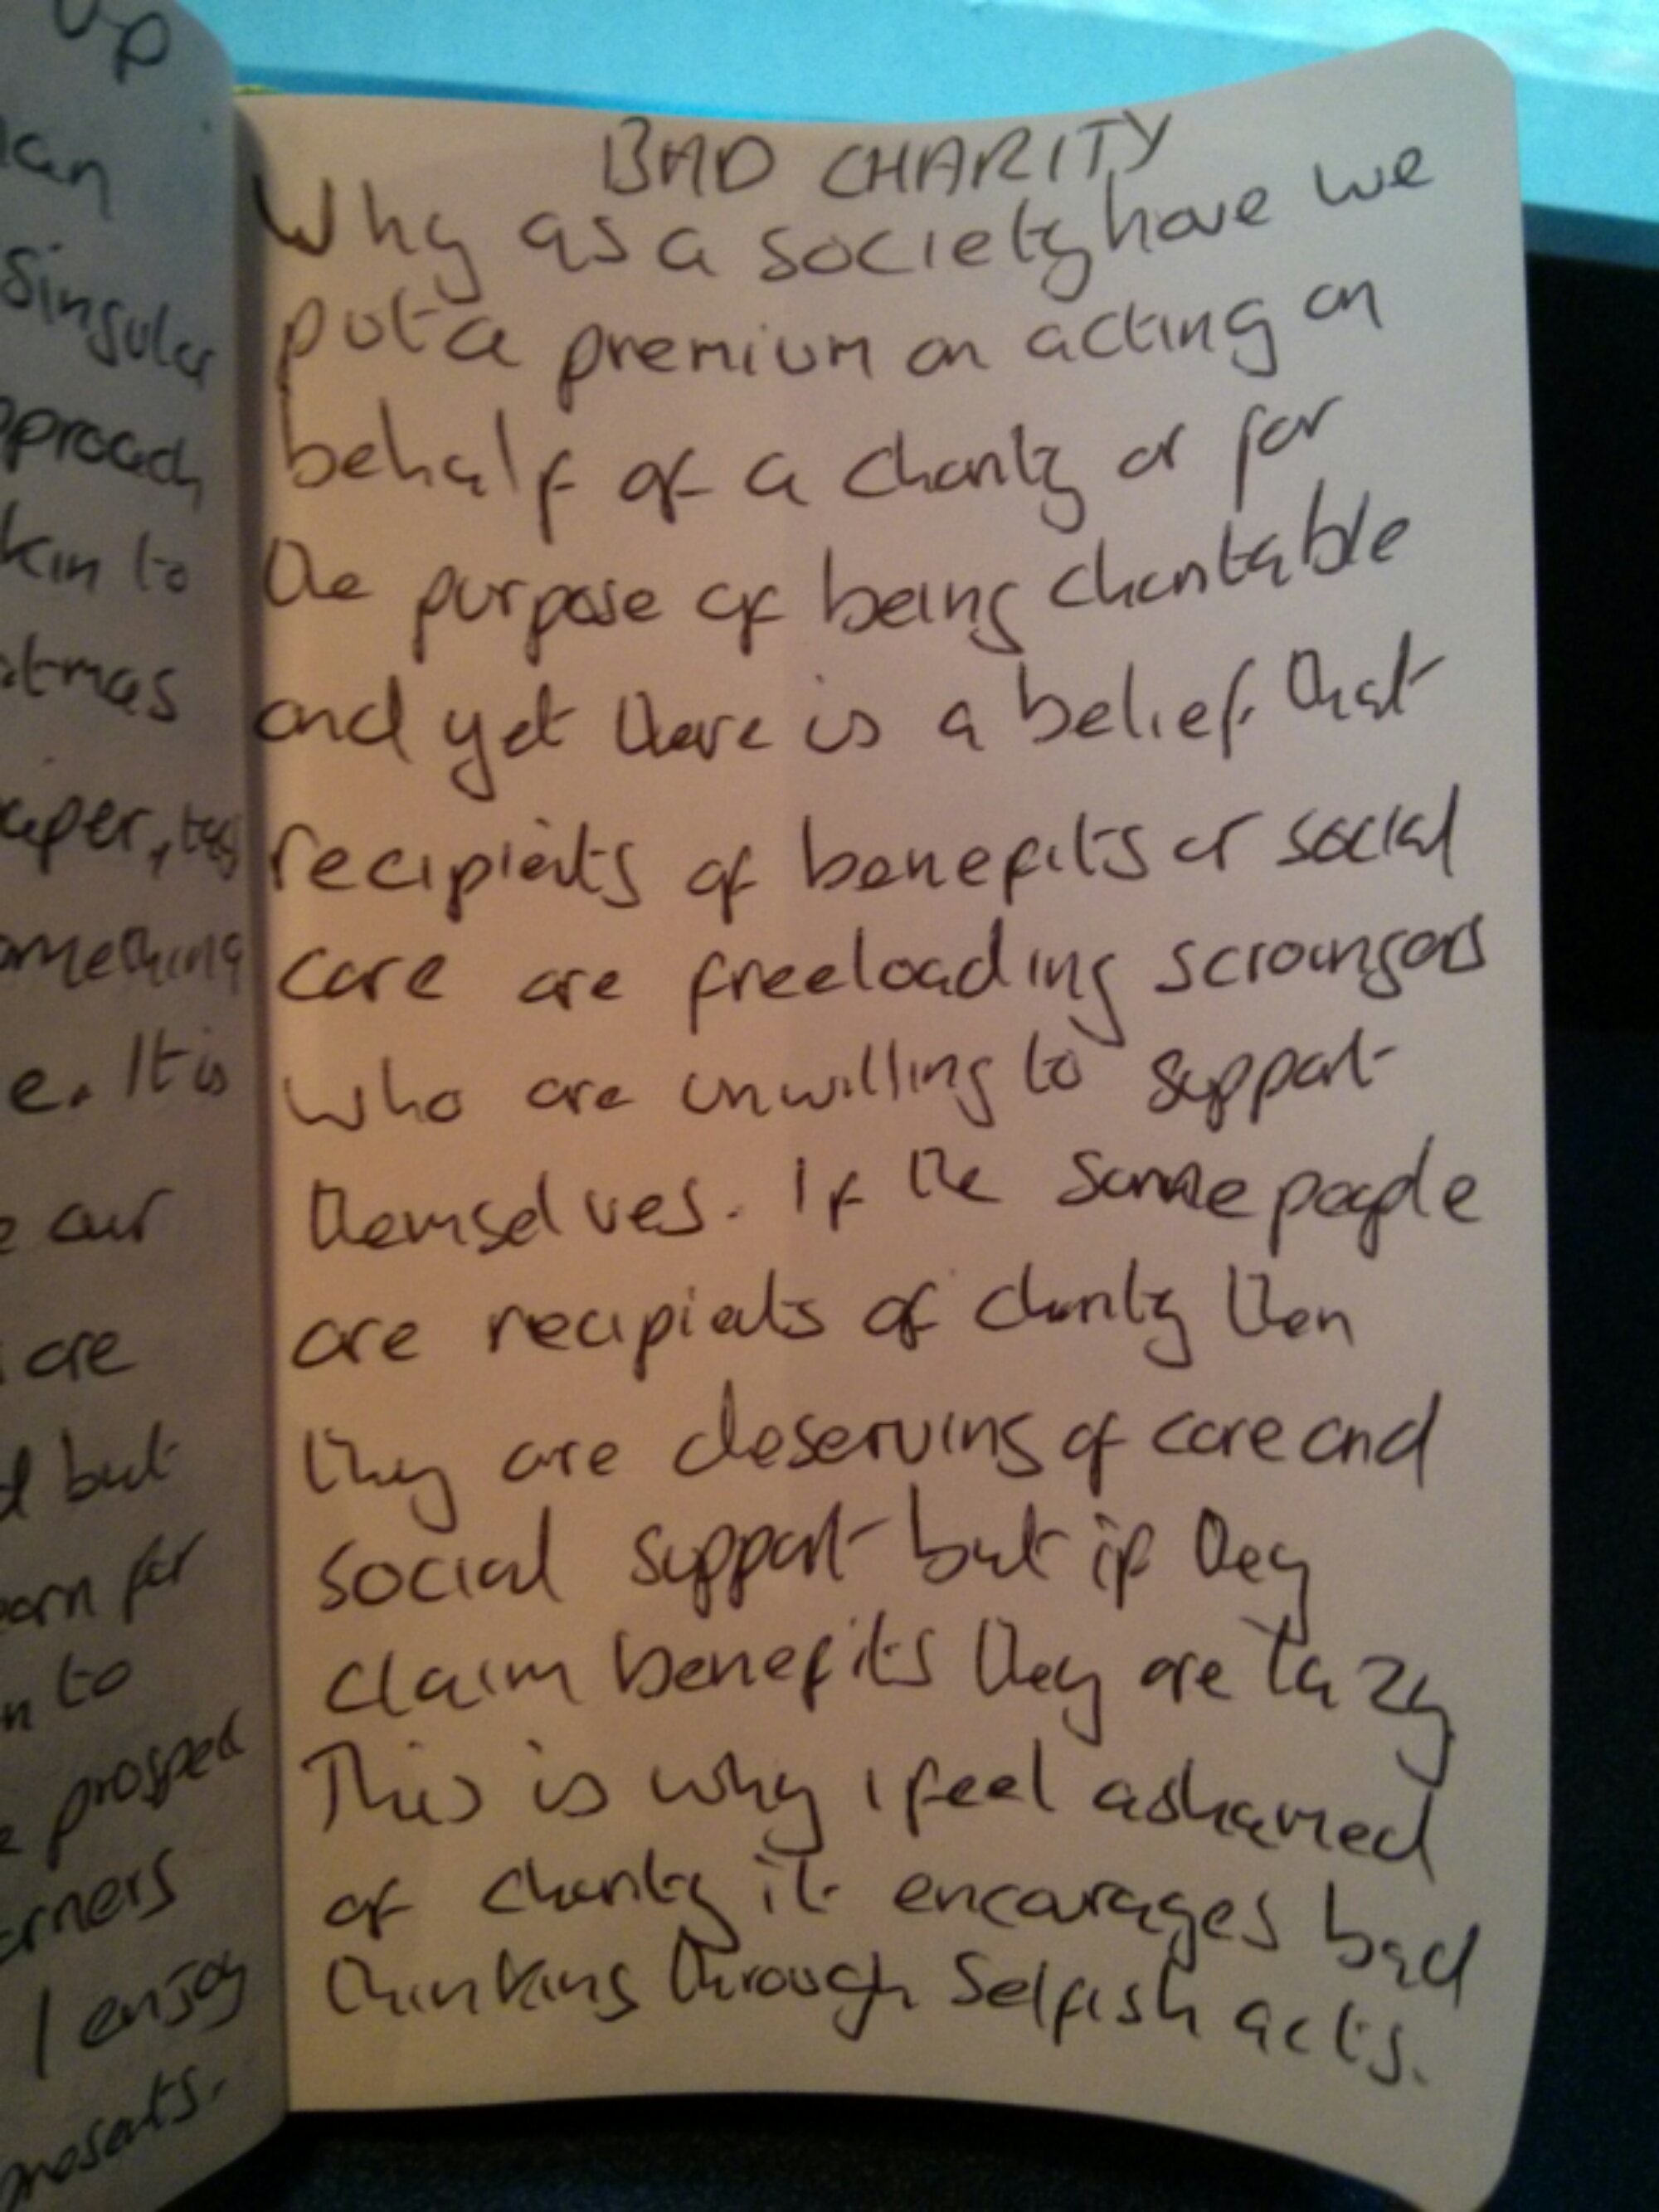 up
an
singular
proach
kin to
tmas
aper, tags
omething
e. It is
our
are
but
for
to
prospect
I enjoy
BAD CHARITY
Why as a society have we
put a premium on acting on
behalf of a charity or for
the purpose of being charitable
and yet there is a belief that
recipients of benefits or social
care are freeloading scroungers
who are unwilling to support
themselves. If the same people
are recipients of charity then
they are deserving of care and
social support but if they
claim benefits they are lazy
This is why I feel ashamed
of charity it encourages bad
thinking through selfish acts.